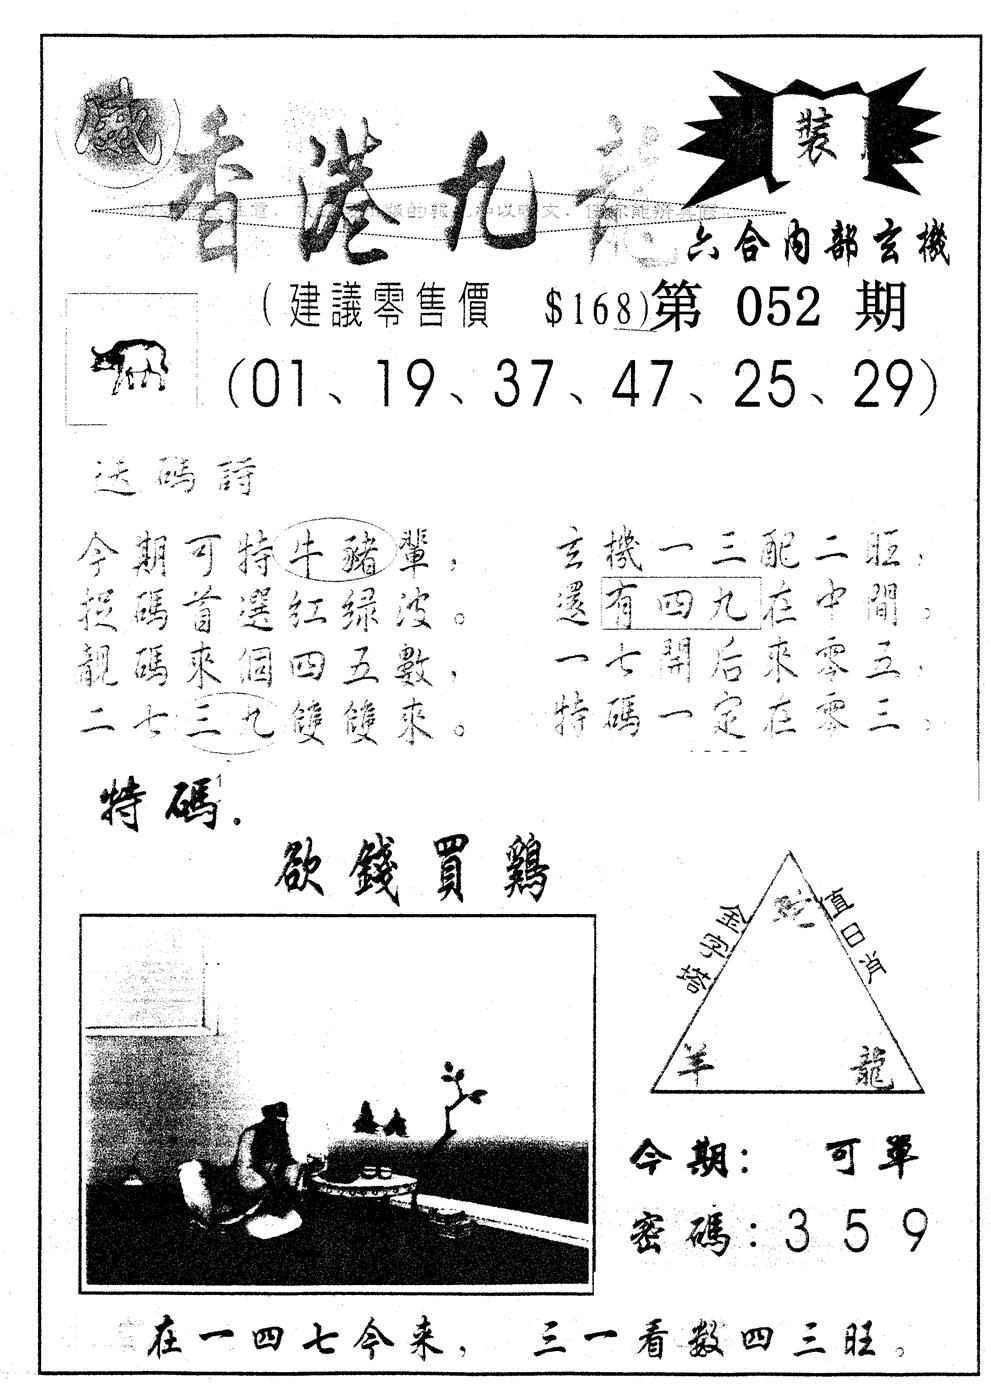 威
香港九龍
裝
的報
六合内部玄機
(建議零售價 $168)第 052 期
(01、19、37、47、25、29)
送碼詩
今期可特牛豬輩，
捉碼首選红绿波。
靚碼來個四五數，
二七三九雙雙來。
玄機一三配二旺，
還有四九在中間。
一七開后來零五，
特碼一定在零三。
特碼.
欲錢買鷄
金字塔
值日肖
蛇
羊
龍
今期： 可單
密碼：3 5 9
在一四七今来，三一看数四三旺。